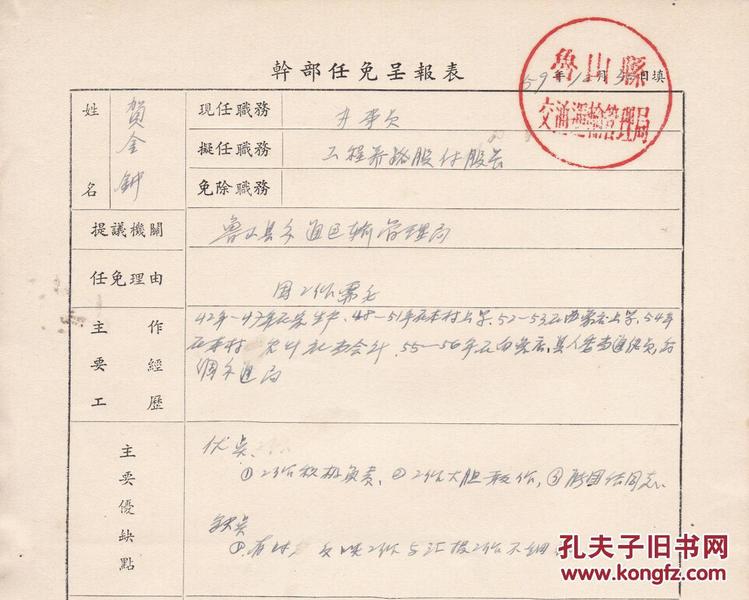 幹部任免呈報表
59年12月 日填
魯山縣
交通運輸管理局
姓名
賀金鈡
現任職務
办事员
擬任職務
工程养路股付股长
免除職務
提議機關
鲁山县交通运输管理局
任免理由
因工作需要
主要工作經歷
42年—47年在家生产、48—51年在本村上学、52—53在 上学、54年
在本村 农业社当会计、55—56年在 县人委当通信员、后
调交通局
主要優缺點
优点、
①工作积极负责、②工作大胆 ③能团结同志
缺点
①有时 反映工作与汇报工作不
孔夫子旧书网
www.kongfz.com